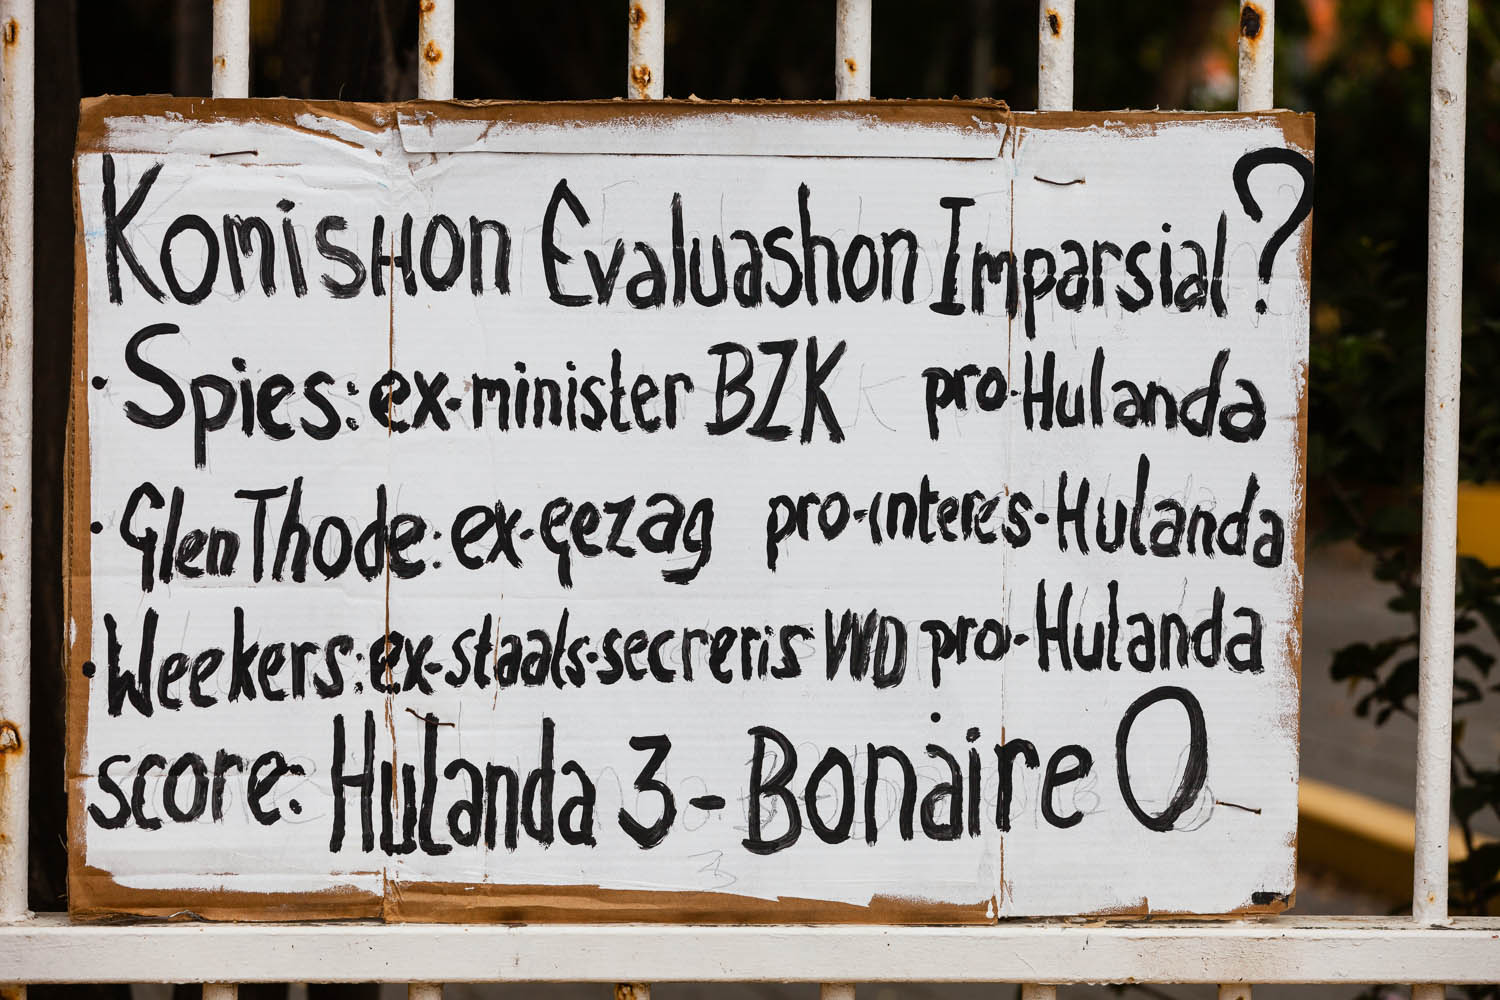 Komishon Evaluashon Imparsial?
· Spies: ex-minister BZK pro-Hulanda
· Glen Thode: ex-gezag pro-interes-Hulanda
· Weekers: ex-staats-secreris VVD pro-Hulanda
score: Hulanda 3 - Bonaire 0